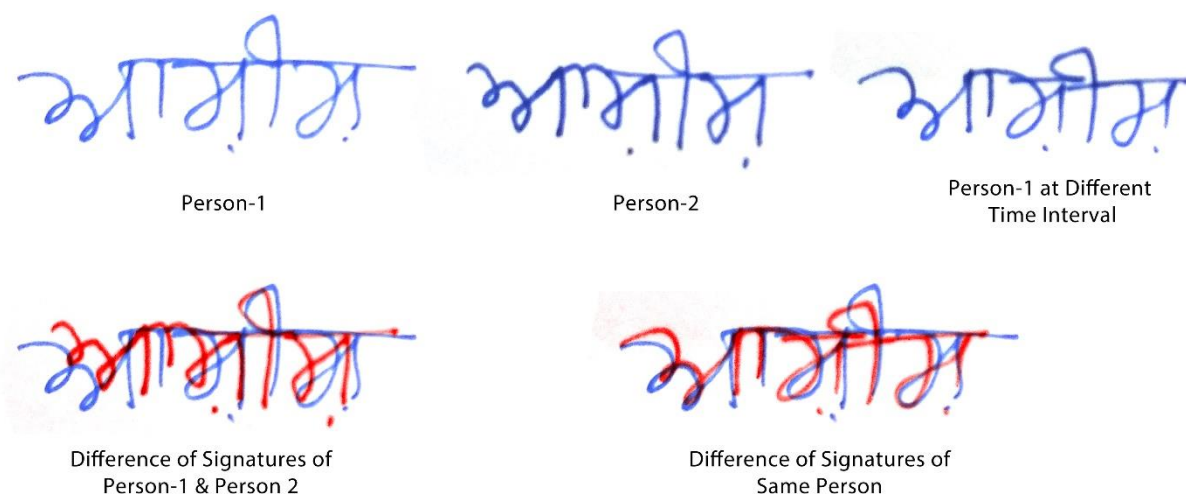 ਆਸ਼ੀਸ਼
ਆਸ਼ੀਸ਼
ਆਸ਼ੀਸ਼
Person-1
Person-2
Person-1 at Different
Time Interval
ਆਸ਼ੀਸ਼
ਆਸ਼ੀਸ਼
Difference of Signatures of
Person-1 & Person 2
Difference of Signatures of
Same Person